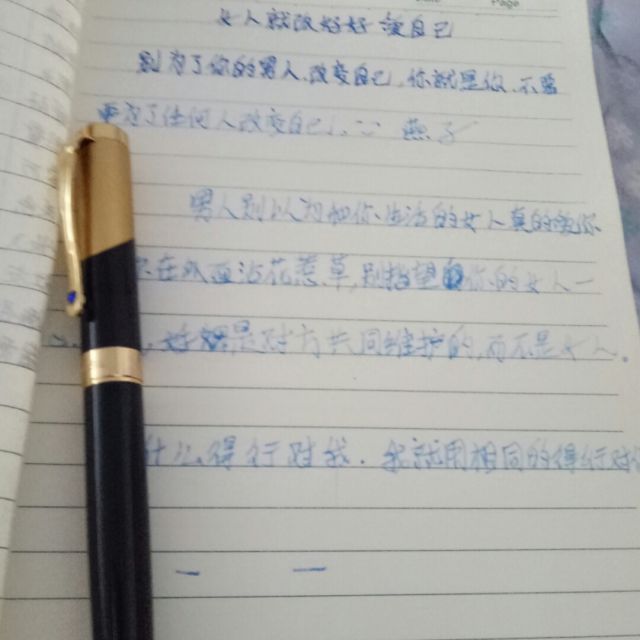 女人就该好好爱自己
别为了你的男人改变自己,你就是你,不要
要为了任何人改变自己
男人别以为和你生活的女人真的
在外面沾花惹草,别指望你的女人一
好婚是对方共同维护的 而不是女人。
什么得行对我.我就用相同的得行对